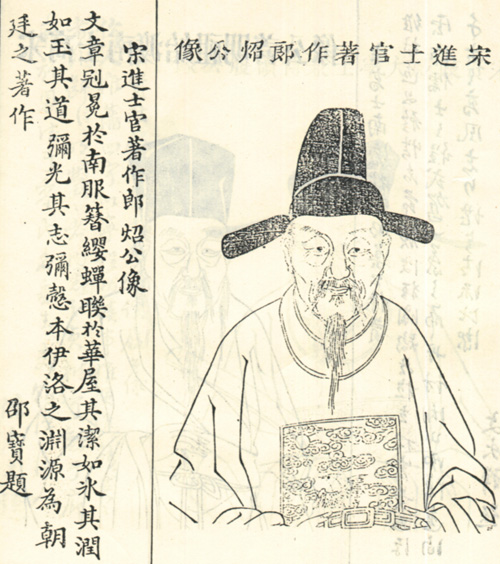 宋進士官著作郎炤公像
宋進士官著作郎炤公像
文章冠冕於南服簪纓蟬聯於華屋其潔如氷其潤
如玉其道彌光其志彌慤本伊洛之淵源為朝
廷之著作
邵寶題